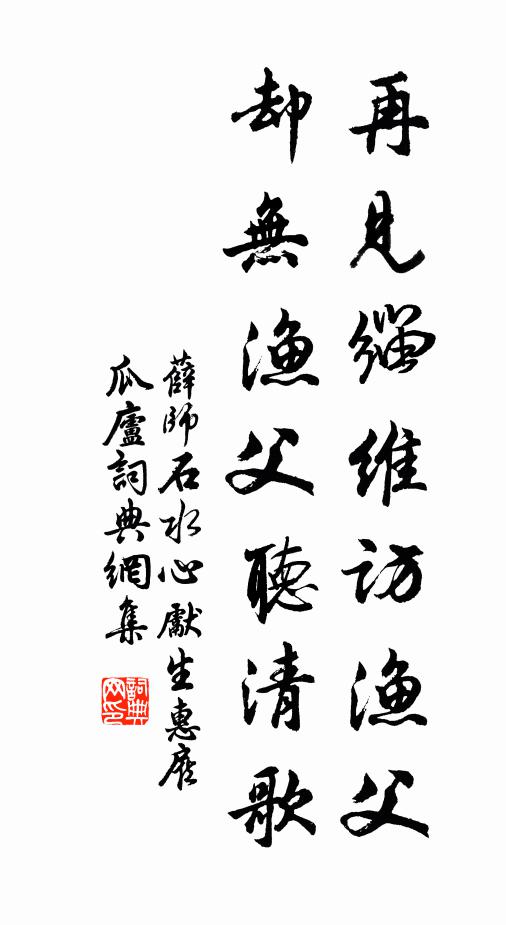 再見緇維訪漁父
却無漁父聽清歌
薛師石水心獻生惠庭
瓜廬詞典網集
詞典網印